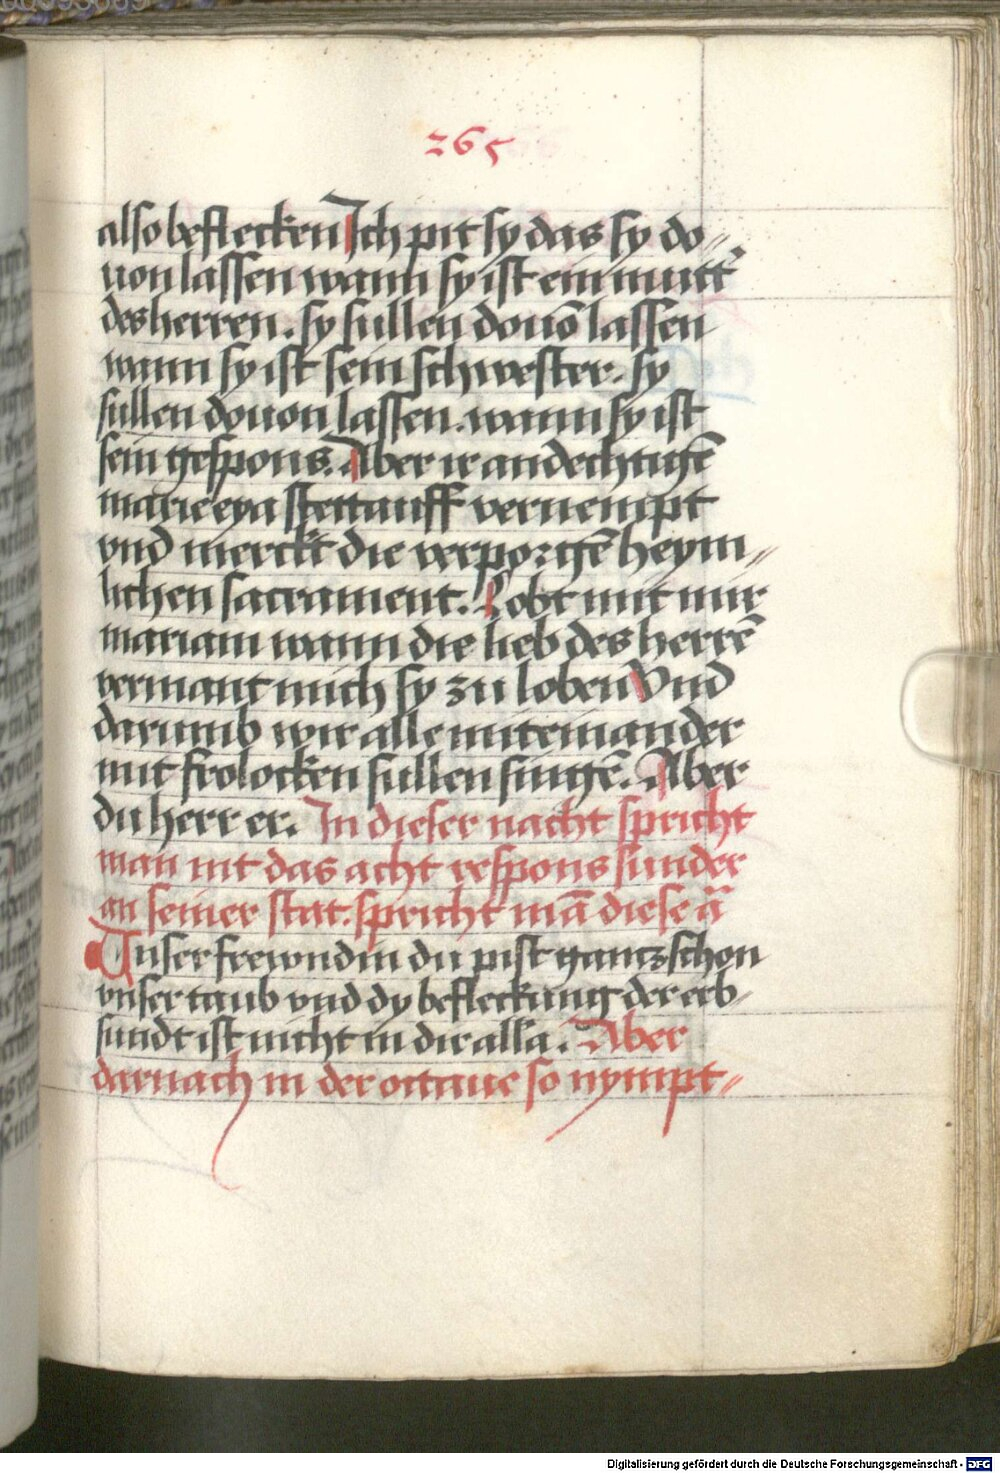 265
also beflecken Ich pit sy das sy do⸗
uon lassen wann sy ist ein mutt̉
des herren. sy sullen douō lassen
wann sy ist sein schwester. sy
sullen douon lassen. wann sy ist
sein gespons. Aber ir andechtigē
marie eya stett auff vernempt
vnd merckt die verporgē heym⸗
lichen sacrament. Lobt mit mir
mariam wann die lieb des herrē
vermant mich sy zu loben Vnd
darumb wir alle miteinander
mit frolocken sullen singē. Aber
du herr er. In dieser nacht spricht
man nit das acht respons sunder
an seiner stat. spricht mā diese ā
Unser frewndin du pist gantz schon
vnser taub vnd dy befleckung der erb⸗
sundt ist nicht in dir alla. Aber
darnach in der octaue so nympt⸗
Digitalisierung gefördert durch die Deutsche Forschungsgemeinschaft - DFG